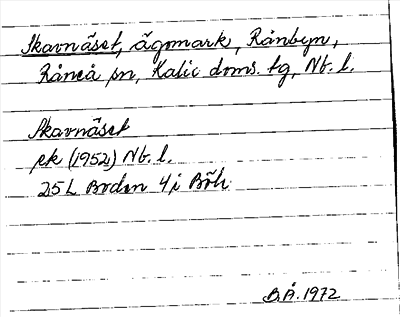 Skavnäset, ägomark, Rånbyn,
Råneå sn, Kalix doms. tg, Nb. l.
Skavnäset
ek (1952) Nb. l.
25 L Boden 4 i Böh
B.Å. 1972